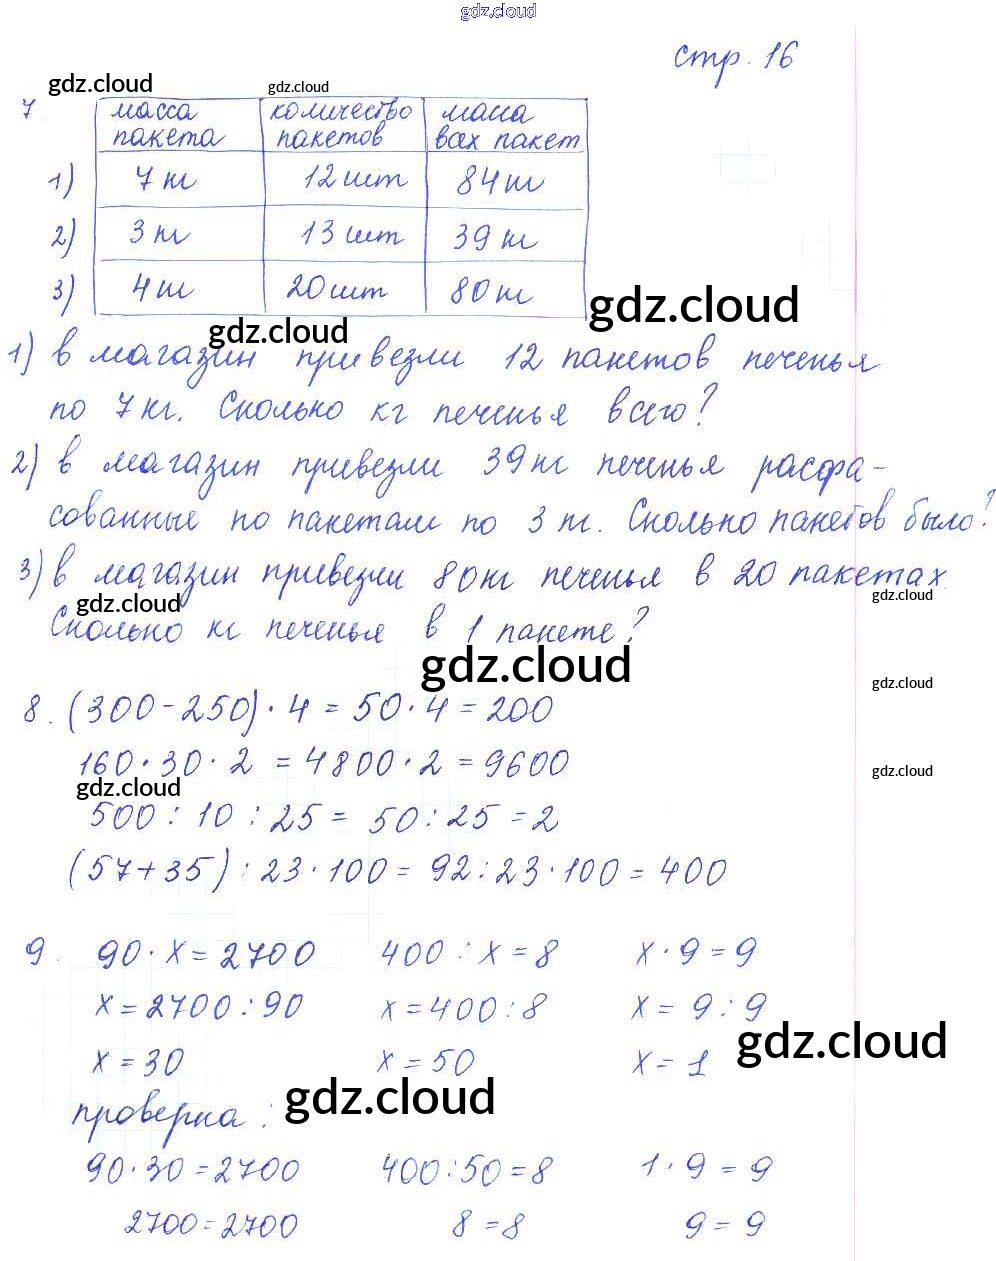 gdz.cloud
стр. 16
gdz.cloud gdz.cloud
7. масса пакета | количество пакетов | масса всех пакет
1) 7 кг | 12 шт | 84 кг
2) 3 кг | 13 шт | 39 кг
3) 4 кг | 20 шт | 80 кг
gdz.cloud
gdz.cloud
1) в магазин привезли 12 пакетов печенья
по 7 кг. Сколько кг печенья всего?
2) в магазин привезли 39 кг печенья расфа-
сованные по пакетам по 3 кг. Сколько пакетов было?
3) в магазин привезли 80 кг печенья в 20 пакетах
gdz.cloud gdz.cloud
Сколько кг печенья в 1 пакете?
gdz.cloud
gdz.cloud
8. (300-250)·4=50·4=200
160·30·2=4800·2=9600
gdz.cloud gdz.cloud
500:10:25=50:25=2
(57+35):23·100=92:23·100=400
9. 90·x=2700 400:x=8 x·9=9
x=2700:90 x=400:8 x=9:9
gdz.cloud
x=30 x=50 x=1
gdz.cloud
проверка:
90·30=2700 400:50=8 1·9=9
2700=2700 8=8 9=9